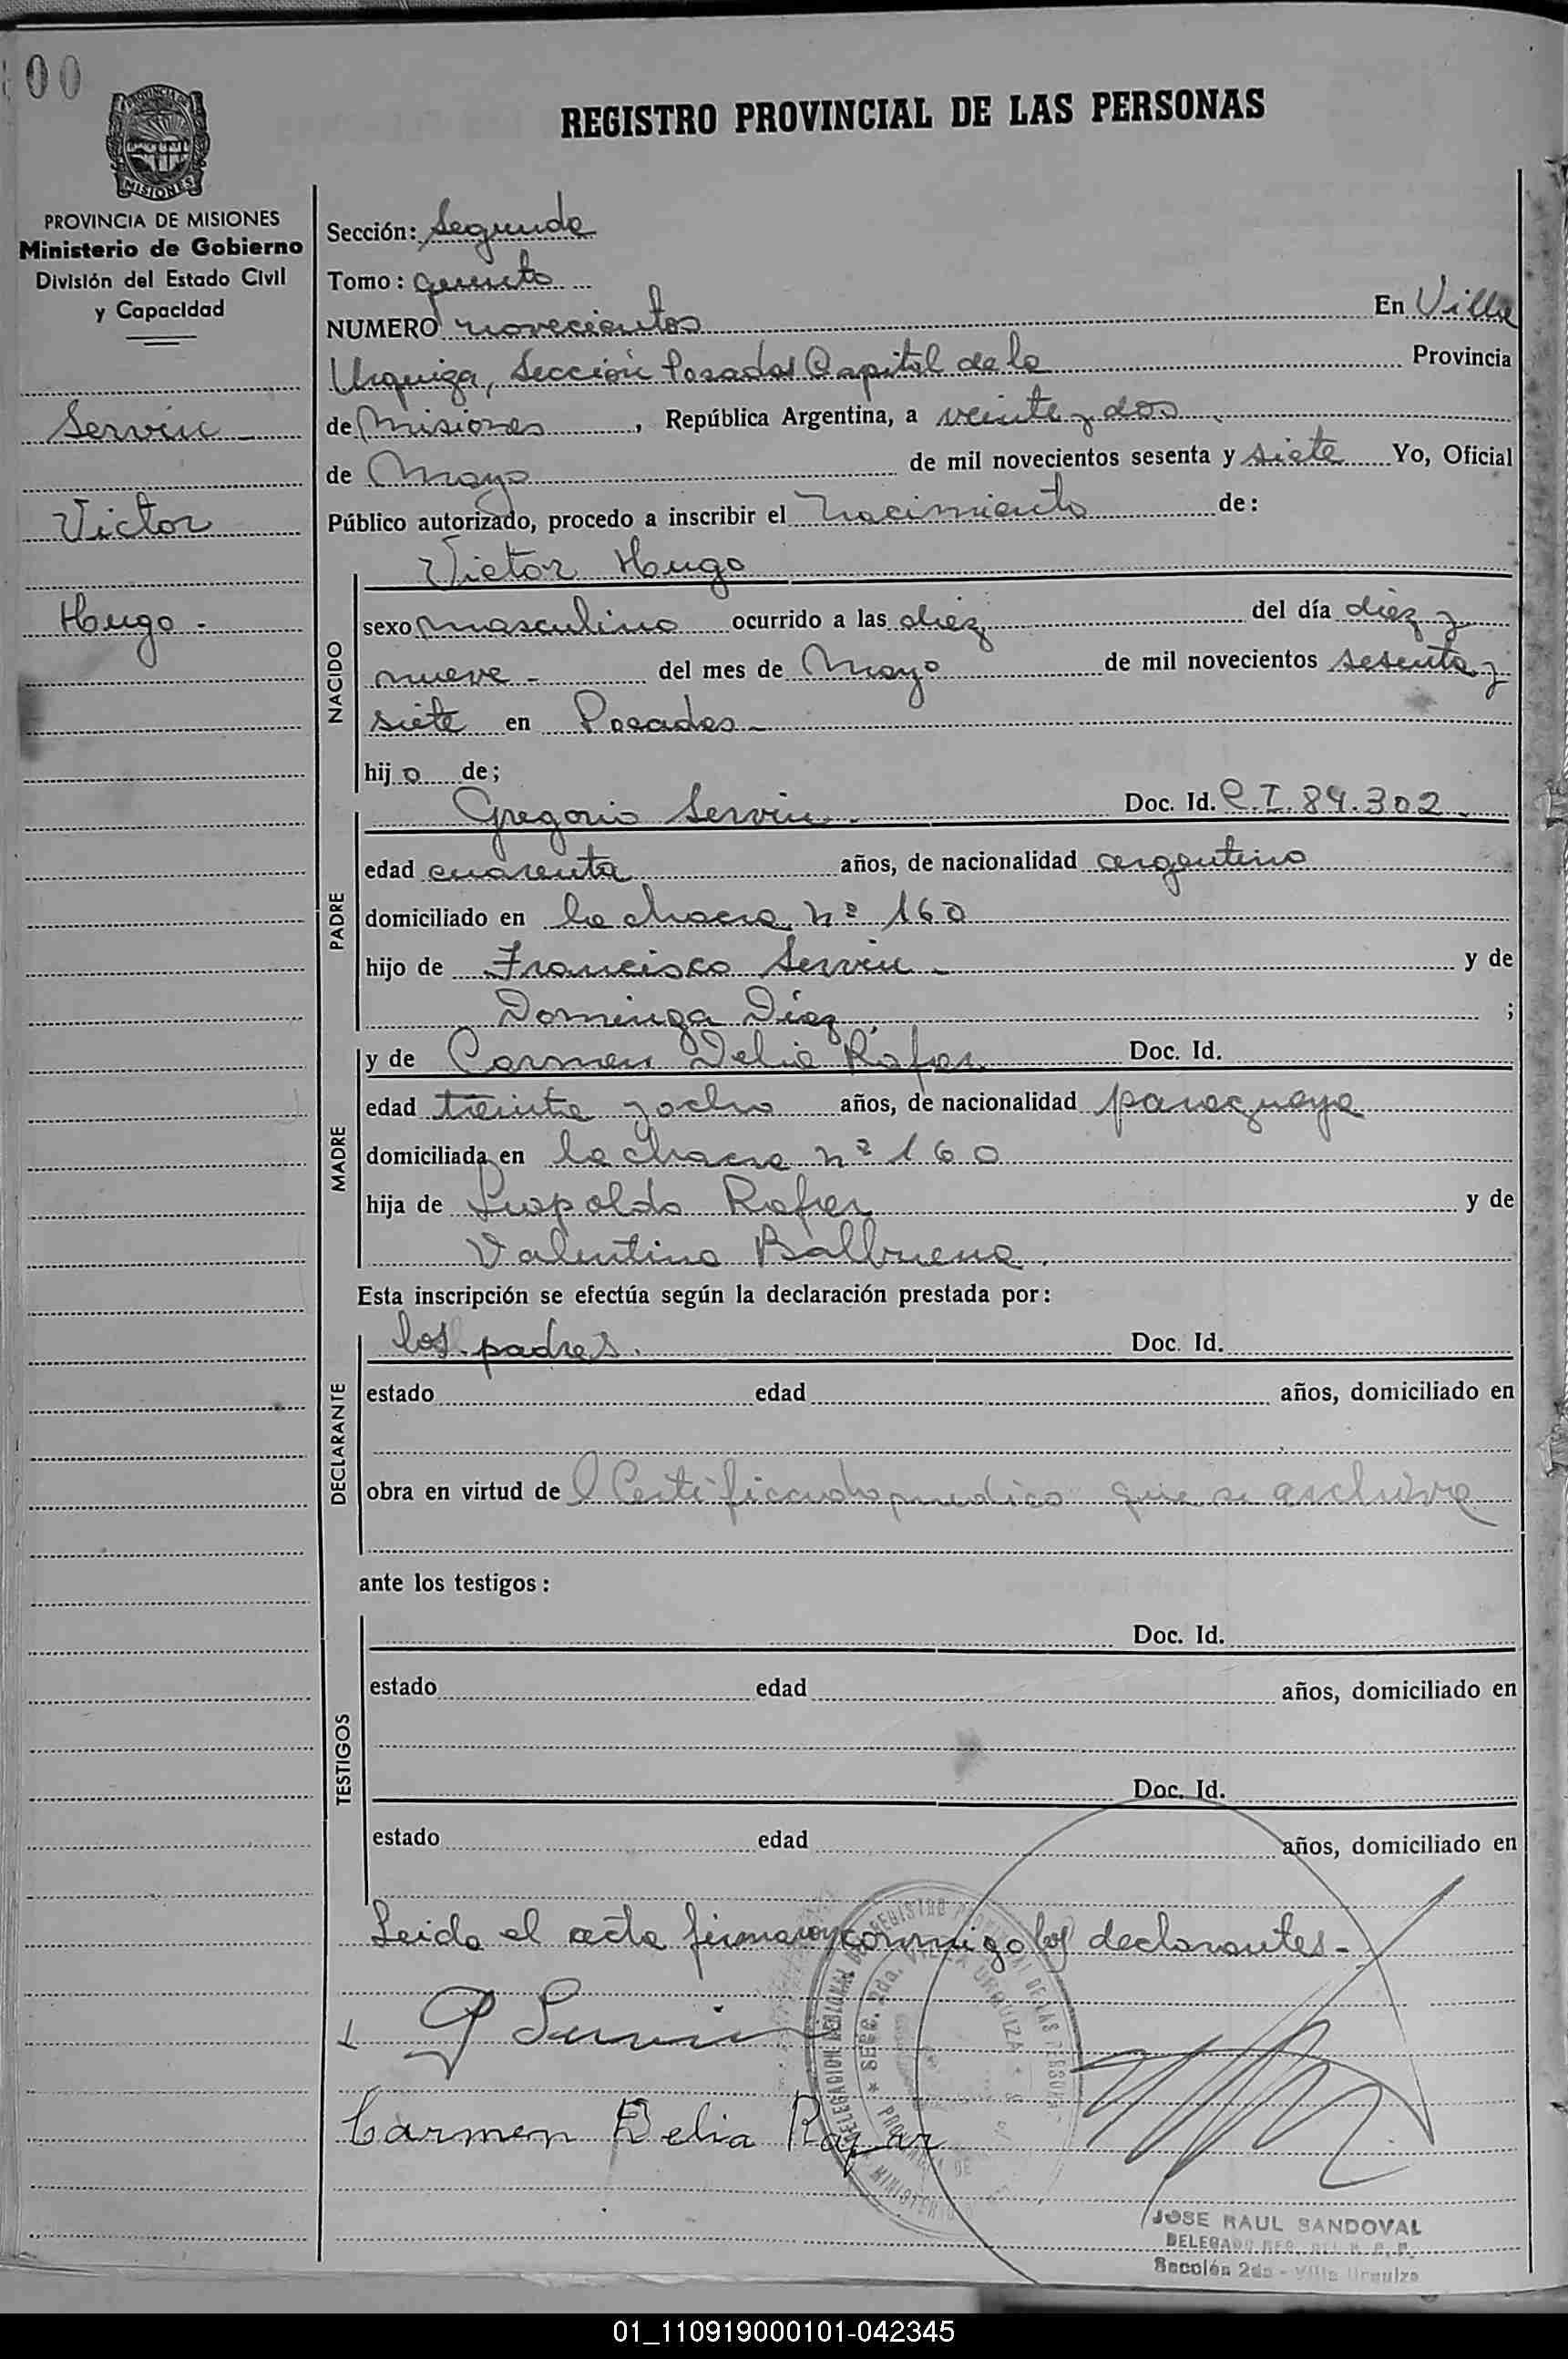 00
PROVINCIA DE
MISIONES
PROVINCIA DE MISIONES
Ministerio de Gobierno
División del Estado Civil
y Capacidad
Servin
Victor
Hugo.-
REGISTRO PROVINCIAL DE LAS PERSONAS
Sección: Segunda
Tomo: quinto
NUMERO novecientos En Villa
Urquiza, Sección Posadas Capital de la Provincia
de Misiones, República Argentina, a veinte y dos
de Mayo de mil novecientos sesenta y siete Yo, Oficial
Público autorizado, procedo a inscribir el Nacimiento de:
NACIDO
Victor Hugo
sexo masculino ocurrido a las diez del día diez y
nueve - del mes de Mayo de mil novecientos sesenta y
siete en Posadas -
hijo de;
PADRE
Gregorio Servin. Doc. Id. C.I. 84.302
edad cuarenta años, de nacionalidad argentino
domiciliado en la chacra nº 160
hijo de Francisco Servin - y de
Dominga Díaz ;
MADRE
y de Carmen Delia Doc. Id.
edad treinta y ocho años, de nacionalidad paraguaya
domiciliada en la chacra nº 160
hija de Leopoldo y de
Valentina Balbuena.
Esta inscripción se efectúa según la declaración prestada por:
DECLARANTE
los padres. Doc. Id.
estado edad años, domiciliado en
obra en virtud de l Certificado medico que se archiva
ante los testigos:
TESTIGOS
Doc. Id.
estado edad años, domiciliado en
Doc. Id.
estado edad años, domiciliado en
Leida el acta firman conmigo los declarantes.-
G Servin
Carmen Delia
SECC. 2da. VILLA URQUIZA
JOSE RAUL SANDOVAL
DELEGADO
Sección 2da - Villa Urquiza
01_110919000101-042345